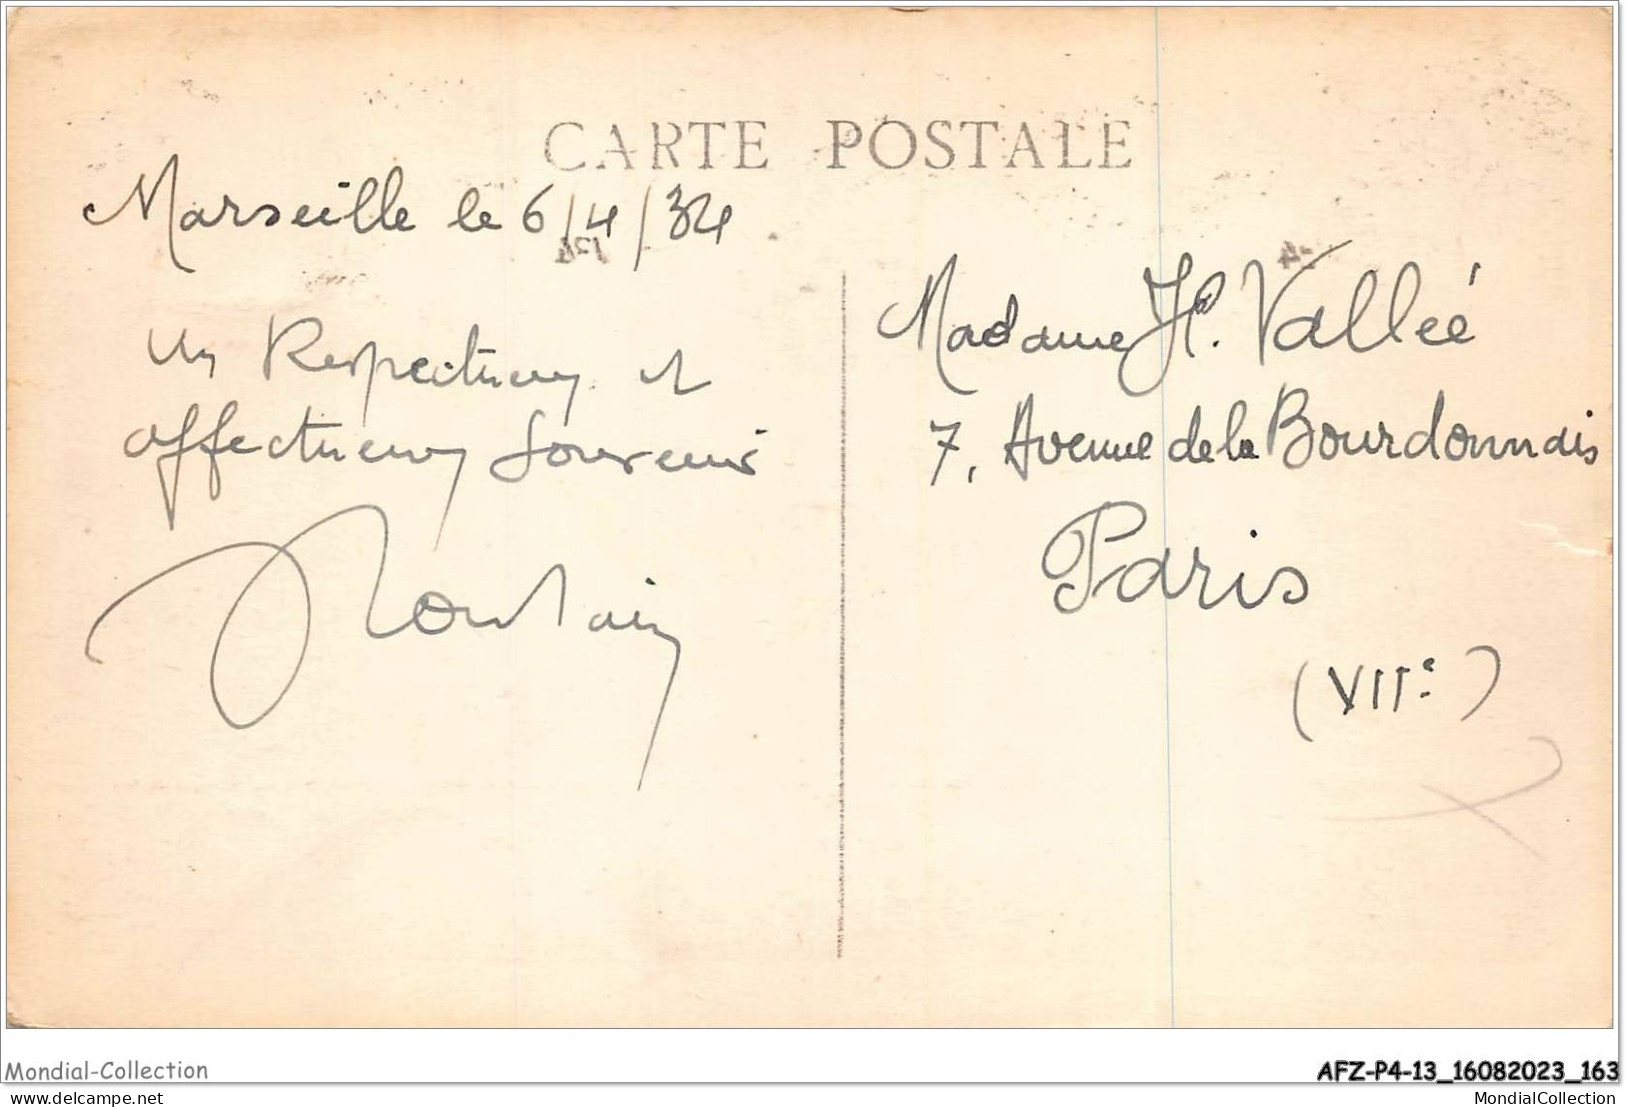 CARTE POSTALE
Marseille le 6/4/34
Un Respectueux et
affectueux Souvenir
Madame H. Vallée
7, Avenue de la Bourdonnais
Paris
(VIIe)
Mondial-Collection
AFZ-P4-13_16082023_163
delcampe.net
MondialCollection